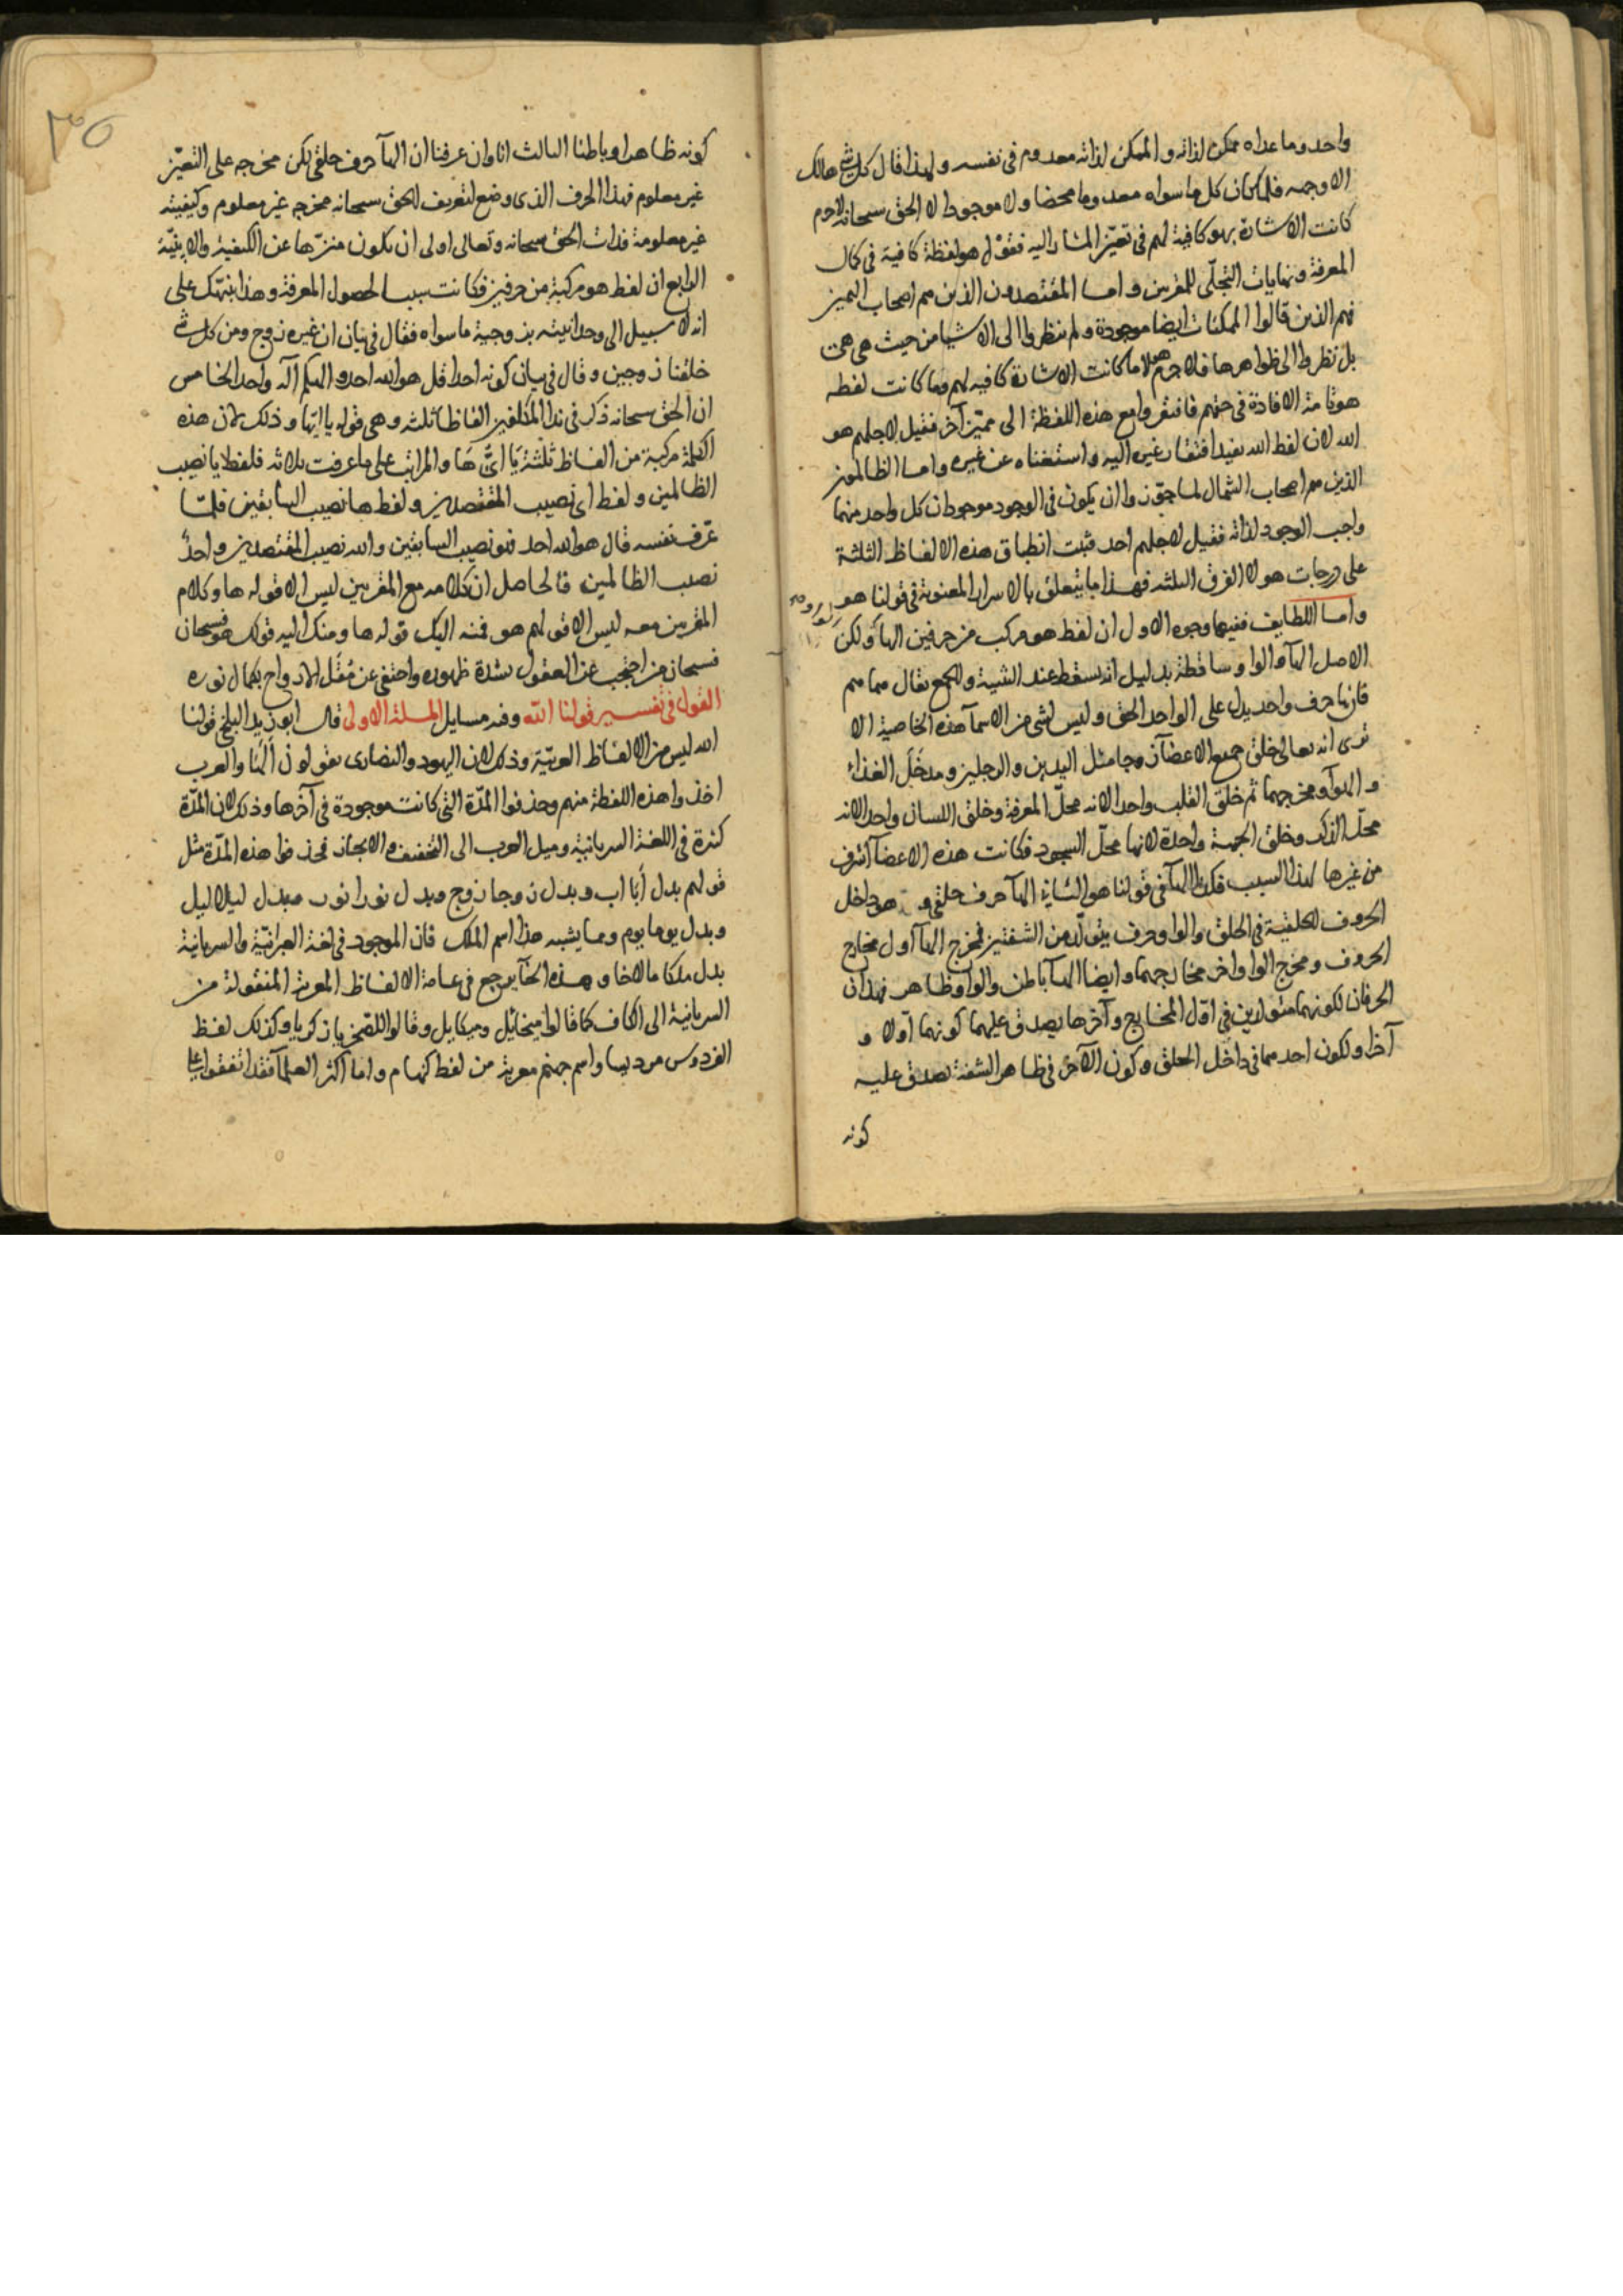 واحد وما عداه ممكن لذاته والممكن لذاته معدوم فى نفسه ولهذا قال كل شئ هالك
الا وجهه فلما كان كل ما سواه معدوما محضا ولا موجود الا الحق سبحانه لاجرم
كانت الاشارة بهو كافية لهم فى تعيّن المشار اليه فقول هو لفظة كافية فى كمال
المعرفة ونهايات التجلّى للمقربين واما المقتصدون الذين هم اصحاب اليمين
فهم الذين قالوا الممكنات ايضا موجودة ولم ينظروا الى الاشيا من حيث هى هى
بل نظروا الى ظواهرها فلا جرم هولا ما كانت الاشارة كافيه لهم وما كانت لفظه
هو تامة الافادة فى حقهم فافتقروا مع هذه اللفظة الى مميّز آخر فقيل لاجلهم هو
الله لان لفظ الله يفيد افتقار غيره اليه واستغناه عن غيره واما الظالمون
الذين هم اصحاب الشمال لما جوّزوا ان يكون فى الوجود موجودان كل واحد منهما
واجب الوجود لذاته فقيل لاجلهم احد فثبت انطباق هذه الالفاظ الثلثة
على درجات هولا الفرق الثلثه فهذا ما يتعلق بالاسرار المعنوية فى قولنا هو
واما اللطايف ففيها وجوه الاول ان لفظ هو مركب من حرفين الها والواو ولكن
الاصل الهآ والواو ساقطة بدليل انه يسقط عند التثنية والجمع يقال هما هم
فانها حرف واحد يدل على الواحد الحق وليس لشى من الاسمآ هذه الخاصية الا
ترى انه تعالى خلق جميع الاعضآ زوجا مثل اليدين والرجلين ومدخل الغذاء
و الهوآ ومخرجهما ثم خلق القلب واحدا لانه محلّ المعرفة وخلق اللسان واحدا لانه
محلّ الذكر وخلق الجبهة واحدة لانها محلّ السجود فكانت هذه الاعضآ اشرف
من غيرها لهذا السبب فكذا الهآ فى قولنا هو الثانى الهآ حرف حلقى و هو داخل
الحروف الحلقية فى الحلق والواو حرف يتولّد من الشفتين فمخرج الهآ اول مخارج
الحروف ومخرج الواو اخر مخارجها وايضا الهآ باطن والواو ظاهر فهذان
الحرفان لكونهما متولدين فى اوّل المخارج وآخرها يصدق عليهما كونهما اوّلا و
آخرا ولكون احدهما فى داخل الحلق وكون الآخر فى ظاهر الشفة يصدق عليه
كونه
٣٥
كونه ظاهرا وباطنا الثالث انا وان عرفنا ان الهآ حرف حلقى لكن مخرجه على التعيّن
غير معلوم فهذا الحرف الذى وضع لتعريف الحق سبحانه مخرجه غير معلوم وكيفيته
غير معلومة فذات الحق سبحانه وتعالى اولى ان يكون منزّها عن الكيفية والاينيّة
الرابع ان لفظ هو مركبة من حرفين فكانت سببا لحصول المعرفة وهذا ينبهك على
انه لا سبيل الى وحدانيته بزوجية ما سواه فقال فى بيان ان غيره زوج ومن كل شئ
خلقنا زوجين وقال فى بيان كونه احدا قل هو الله احد والهكم آله واحد الخامس
ان الحق سبحانه ذكر فى ندا المكلفين الفاظا ثلثه وهى قوله يا ايّها وذلك لان هذه
الكلمة مركبة من الفاظ ثلثة يَا اىُّ هَا والمراتب على ما عرفت ثلاثه فلفظ يا نصيب
الظالمين ولفظ اى نصيب المقتصدين ولفظ ها نصيب السابقين فلمّا
عرّف نفسه قال هو الله احد فهو نصيب السابقين والله نصيب المقتصدين واحدٌ
نصيب الظالمين فالحاصل ان كلامه مع المقربين ليس الا قوله ها وكلام
المقربين معه ليس الا قولهم هو فمنه اليك قوله ها ومنك اليه قولك هو فسبحان
فسبحان من احتجب عن العقول بشدة ظهوره واختفى عن مُقَل الارواح بكمال نوره
القول فى تفسير قولنا الله وفيه مسايل المسئلة الاولى قال ابو زيد البلخى قولنا
الله ليس من الالفاظ العربيّة وذلك لان اليهود والنصارى يقولون ألٰهَا والعرب
اخذوا هذه اللفظة منهم وحذفوا المدّة التى كانت موجودة فى آخرها وذلك لان المدّة
كثيرة فى اللغة السريانية وميل العرب الى التخفيف والايجاز فحذفوا هذه المدّة مثل
قولهم بدل أبَا اب وبدل زوجا زوج وبدل نورا نور وبدل ليلا ليل
وبدل يوما يوم ومما يشبه هذا اسم الملك فان الموجود فى لغة العبرانيّة والسريانية
بدل ملكا مالاخا وهذه الخآ يرجع فى عامة الالفاظ المعربة المنقولة من
السريانية الى الكاف كما قالوا ميخائيل وميكايل وقالوا للصخريا زكريا وكذلك لفظ
الفردوس وردسا واسم جهنم معربة من لفظ كهنام واما اكثر العلمآ فقد اتفقوا على